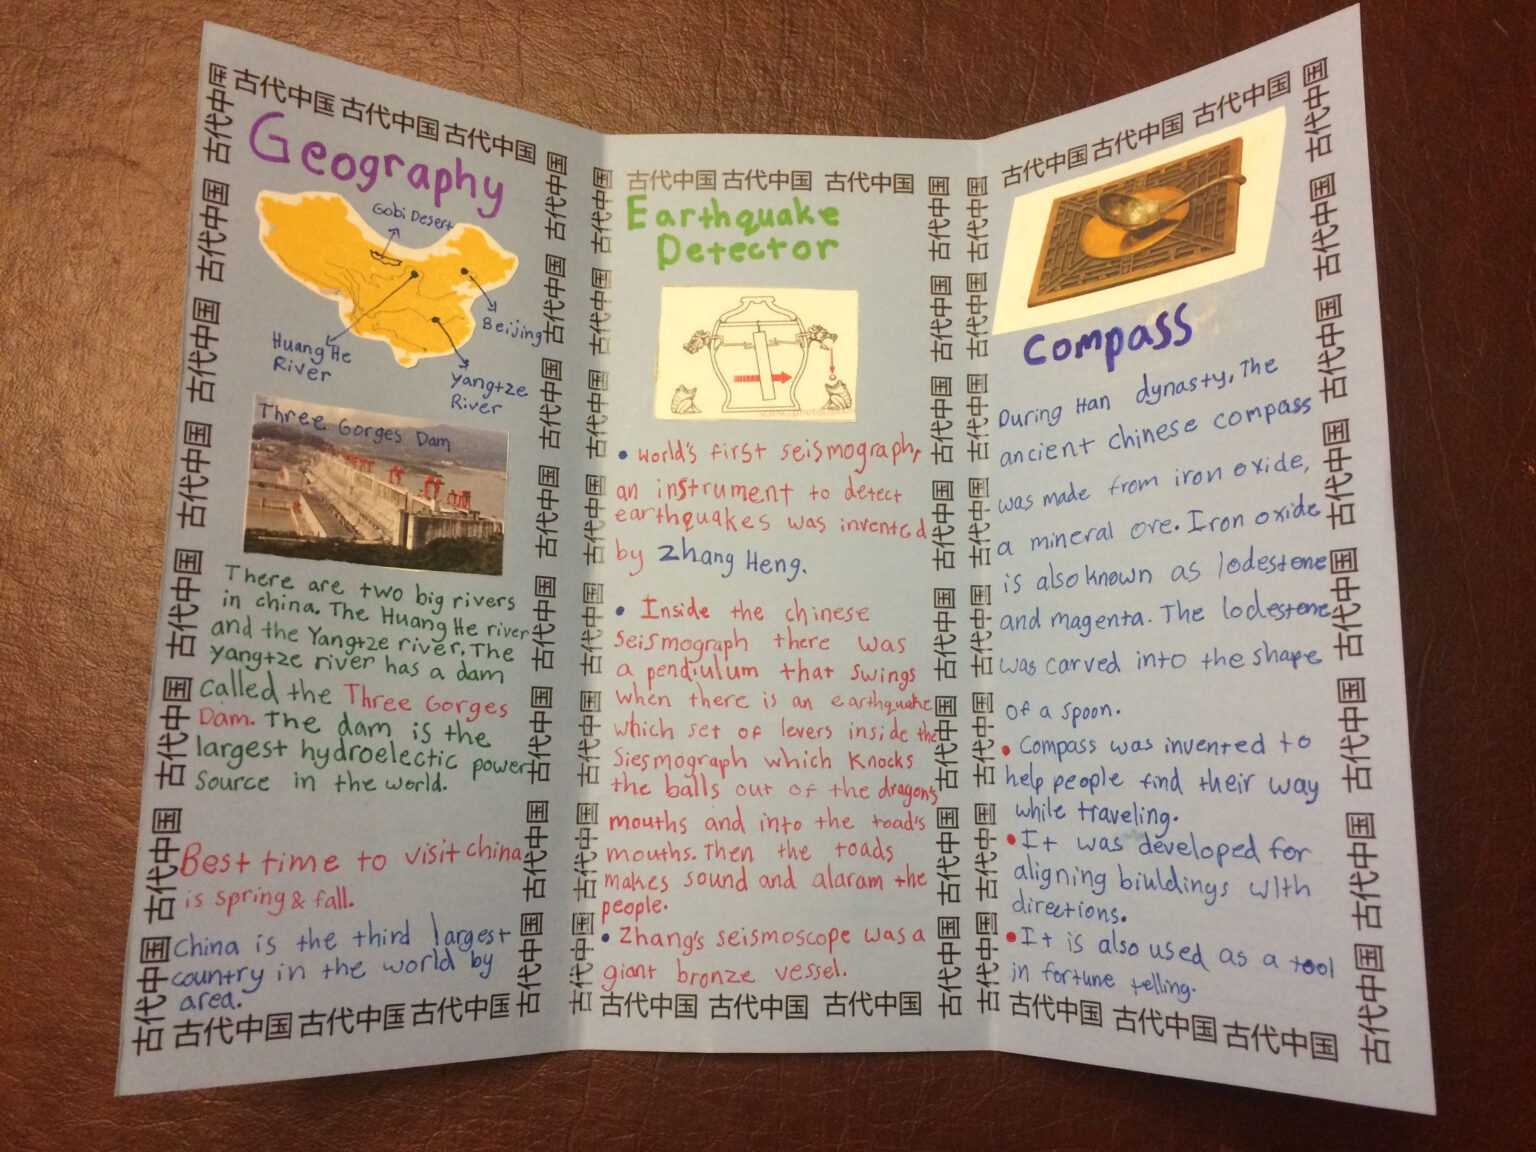 古代中国 古代中国 古代中国
Geography
Gobi Desert
Beijing
Huang He
River
Yangtze
River
Three Gorges Dam
There are two big rivers
in china. The Huang He river
and the Yangtze river. The
yangtze river has a dam
called the Three Gorges
Dam. The dam is the
largest hydroelectic power
source in the world.
Best time to visit china
is spring & fall.
China is the third largest
country in the world by
area.
古代中国 古代中国 古代中国
古代中国 古代中国 古代中国 古代中国 古代中国 古代中国 古代中国 古代中国
古代中国 古代中国 古代中国 古代中国 古代中国 古代中国 古代中国 古代中国
古代中国 古代中国 古代中国
Earthquake
Detector
• world's first seismograph,
an instrument to detect
earthquakes was invented
by Zhang Heng.
• Inside the chinese
seismograph there was
a pendiulum that swings
when there is an earthquake
which set of levers inside the
Siesmograph which knocks
the balls out of the dragon's
mouths and into the toad's
mouths. Then the toads
makes sound and alaram the
people.
• Zhang's seismoscope was a
giant bronze vessel.
古代中国 古代中国 古代中国
古代中国 古代中国 古代中国 古代中国 古代中国 古代中国 古代中国 古代中国
古代中国 古代中国 古代中国 古代中国 古代中国 古代中国 古代中国 古代中国
古代中国 古代中国 古代中国
Compass
During Han dynasty, The
ancient chinese compass
was made from iron oxide,
a mineral ore. Iron oxide
is also known as lodestone
and magenta. The lodestone
was carved into the shape
of a spoon.
• Compass was invented to
help people find their way
while traveling.
• It was developed for
aligning biuldings with
directions.
• It is also used as a tool
in fortune telling.
古代中国 古代中国 古代中国
古代中国 古代中国 古代中国 古代中国 古代中国 古代中国 古代中国 古代中国
古代中国 古代中国 古代中国 古代中国 古代中国 古代中国 古代中国 古代中国